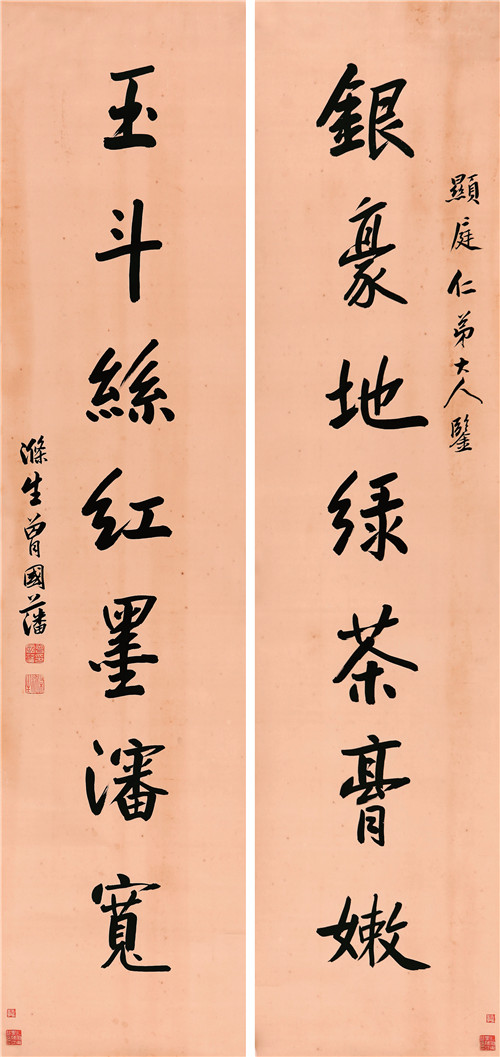 顯庭仁弟大人鑒
銀豪地綠茶膏嫩
玉斗絲紅墨瀋寬
滌生曾國藩